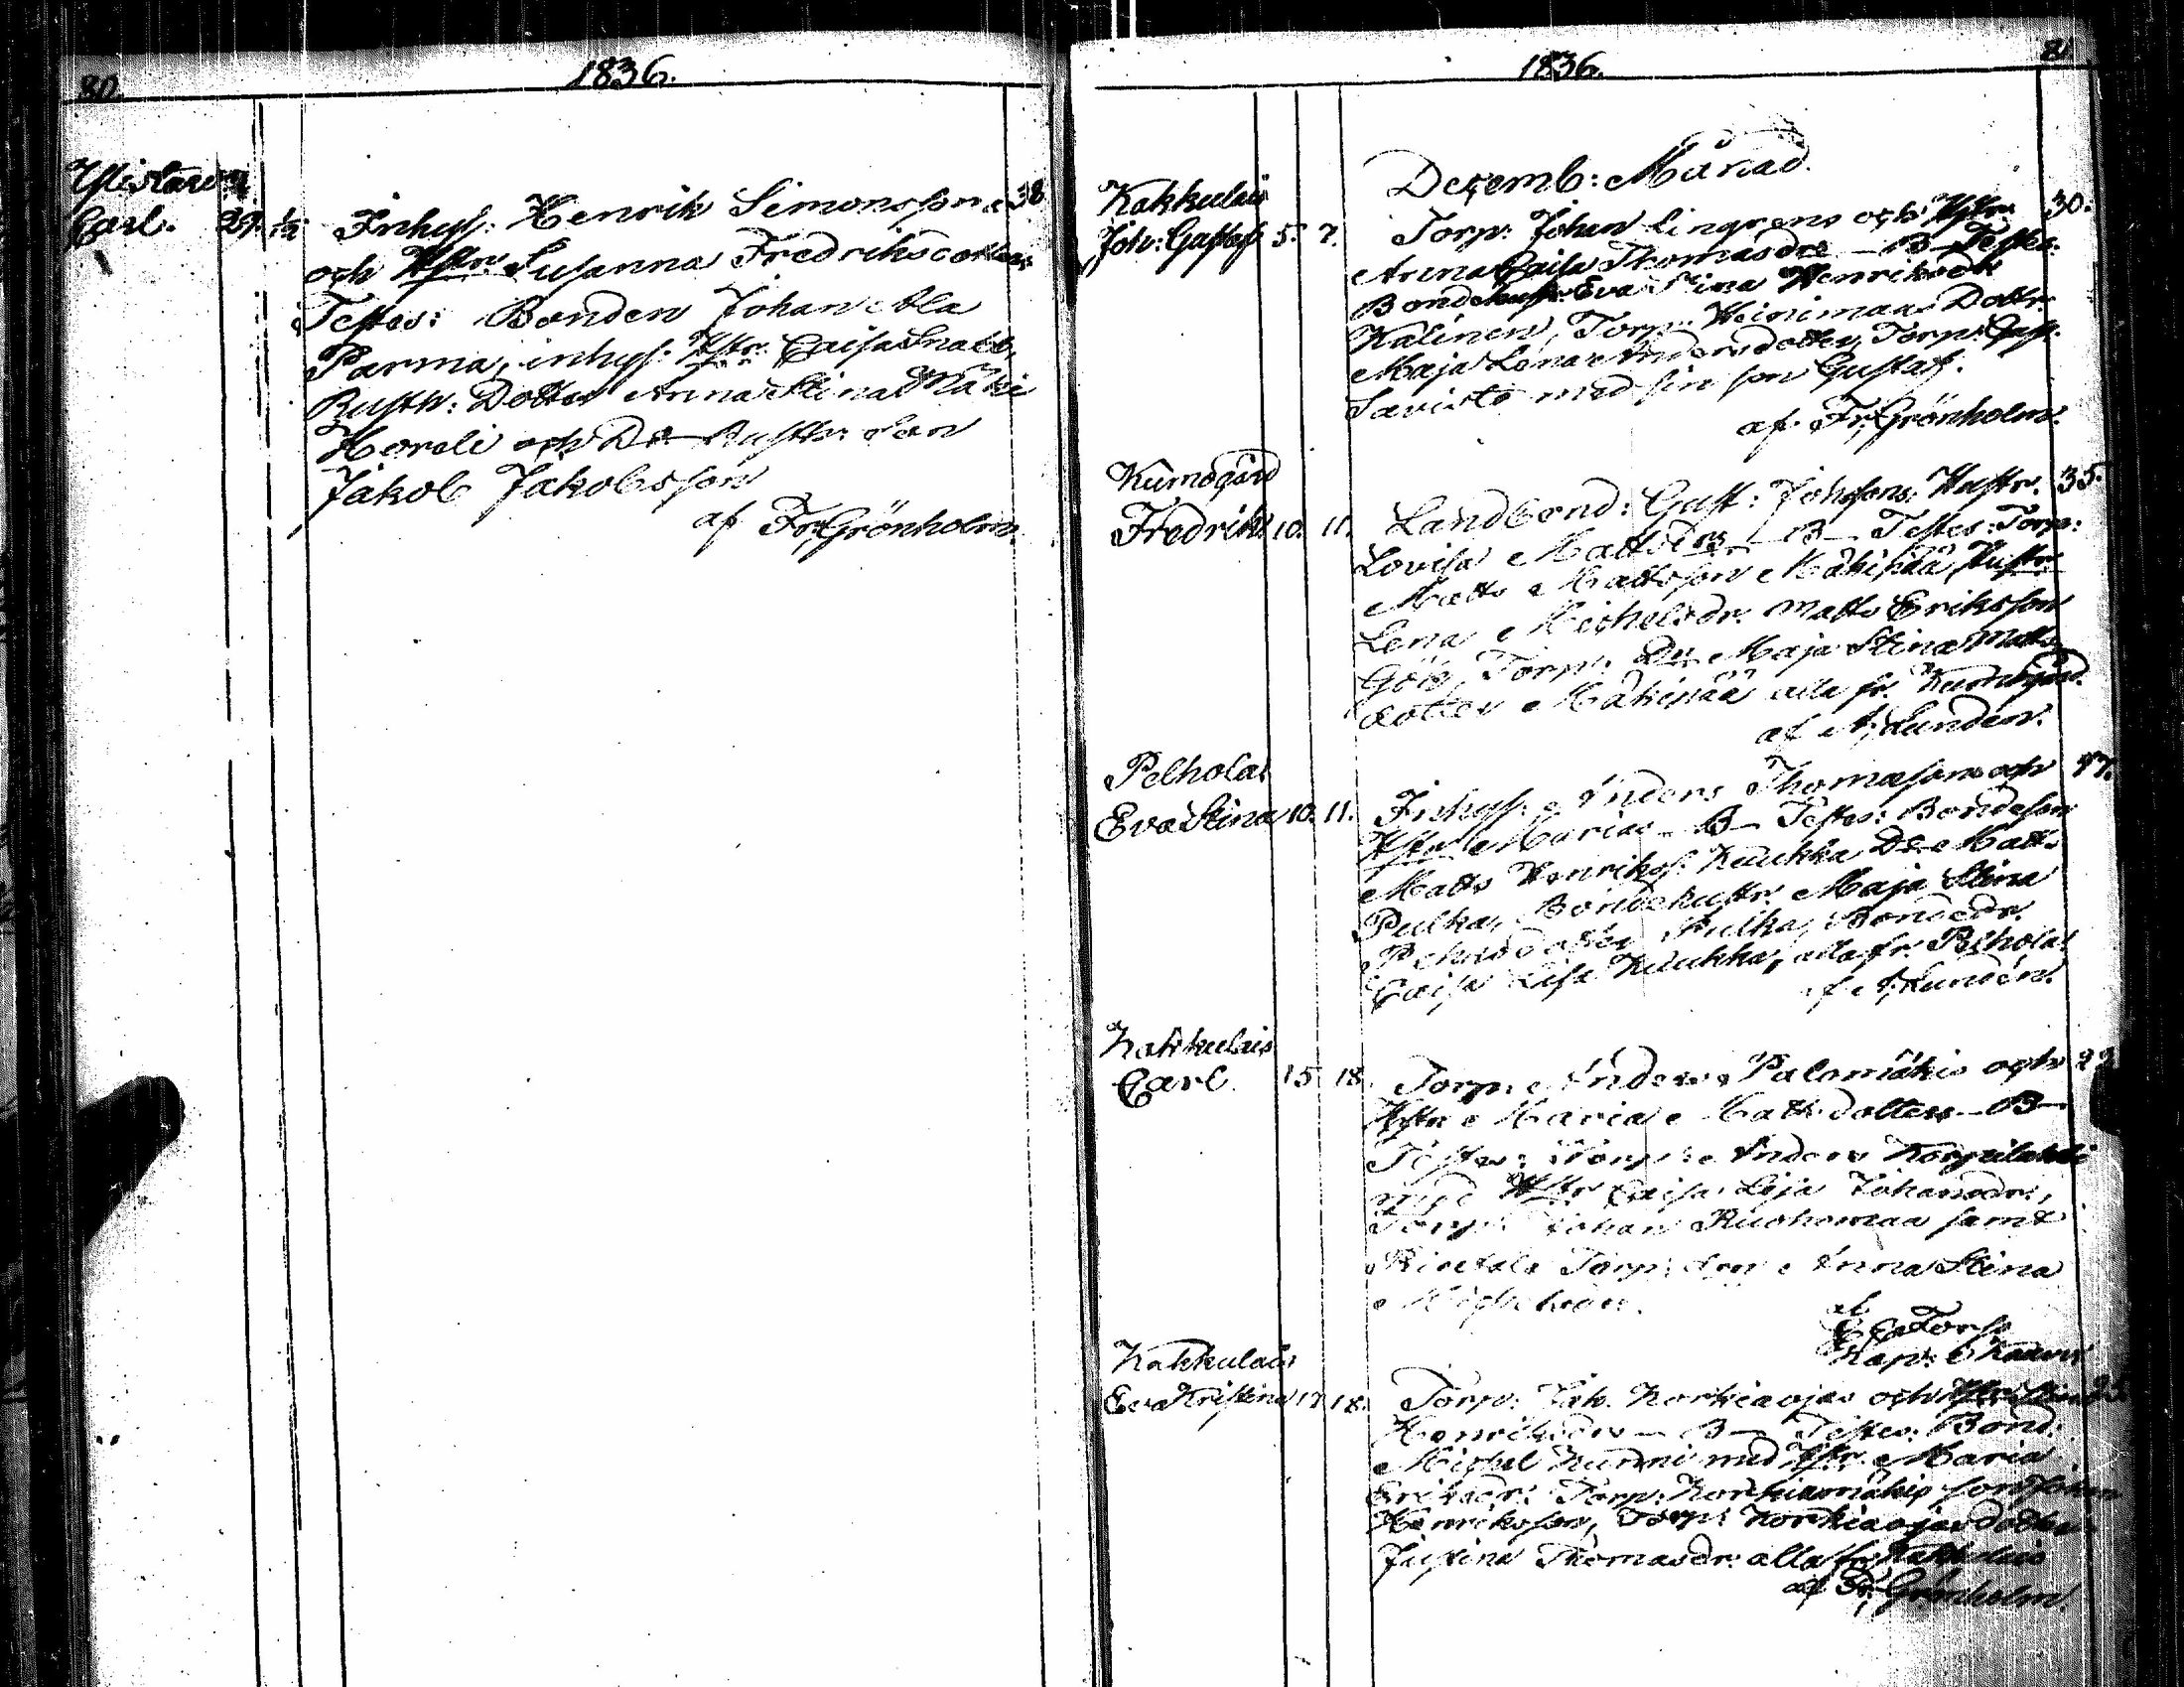 80. 1836.
Ylistaro
Carl. 29. 1/12 Inhys: Henrik Simonsson 38
och Hstr. Susanna Fredriksdotter
Testes: Bonden Johan Ala
Parma, inhys: Hstr. Caisa
Rusth: Dotter Anna Stina Mäki
Hordi och Do Rusth: Son
Jakob Jakobsson
af Fr. Grönholm.
1836. 81
Decemb: Månad.
Kakkulais
Joh: Gustaf 5. 7. Torp: Johan Lingrens och Hstr. 30.
Anna Caisa Thomasdr — B — Testes:
Bondehustr. Eva Stina Henriksdr
Kälinen, Torp: Heinimaa Dottr.
Maja Lena Andersdotter, Torp: Gust.
Savisto med sin son Gustaf.
af Fr. Grönholm.
Kumogård
Fredrik 10. 11. Landbond: Gust: Johssons Hustr. 35.
Lovisa Mattsdr — B — Testes: Torp:
Matts Mattsson Mäkipää, Hustr.
Lena Michelsdr. Matts Eriksson
Gök, Torp: Dr Maja Stina Matts
dotter Mäkipää alla fr. Kumogård.
af A. Lundén.
Pelhola
Eva Stina 10. 11. Inhys: Anders Thomasson och
Hstr Maria — B — Testes: Bondeson
Matts Henrikss. Kuukka Do Matts
Pulka, Bondehustr. Maja Stina
Pehrsdotter Pulka, Bondedr.
Caisa Lisa Kuukka, alla fr. Pelhola
af A. Lundén.
Kakkulais
Carl. 15 18. Torp: Anders Palomäkis och
Hstr Maria Mattsdotter — B —
Testes: Torp: Anders Korpilahti
med Hstr Caisa Lisa Johansdr.,
Torp: Johan Ruohomaa samt
Rintala Torp: Anna Stina
Michelsdr.
af
Torp
Kap:
Kakkulais
Eva Kristina 17 18. Torp: Jak. Korkiaojas och Hstr Stina
Henriksdr — B — Testes: Bond:
Michel Kurni med Hstr. Maria
Eriksdr: Torp: Korkiamäkis son Johan
Henriksson, Torp: Korkiaojas dotter
Justina Thomasdr. alla fr. Kakkulais
af Fr. Grönholm.